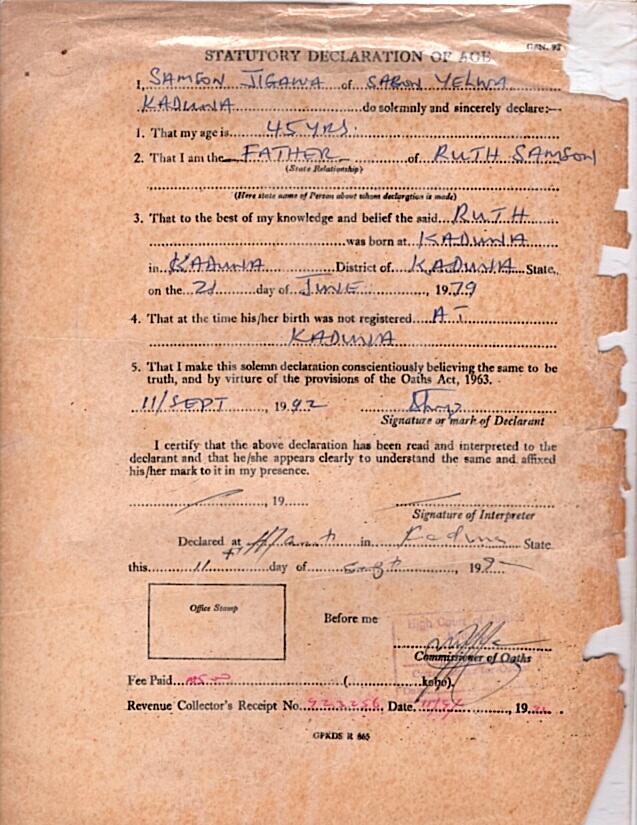 GEN. 92
STATUTORY DECLARATION OF AGE
I, SAMSON JIGAWA of SABON YELWA
KADUNA do solemnly and sincerely declare:—
1. That my age is 45 YRS.
2. That I am the FATHER of RUTH SAMSON
(State Relationship)
(Here state name of Person about whom declaration is made)
3. That to the best of my knowledge and belief the said RUTH
was born at KADUNA
in KADUNA District of KADUNA State,
on the 21 day of JUNE, 1979
4. That at the time his/her birth was not registered AT
KADUNA
5. That I make this solemn declaration conscientiously believing the same to be
truth, and by virtue of the provisions of the Oaths Act, 1963.
11/SEPT, 1992
Signature or mark of Declarant
I certify that the above declaration has been read and interpreted to the
declarant and that he/she appears clearly to understand the same and affixed
his/her mark to it in my presence.
, 19
Signature of Interpreter
Declared at in Kaduna State
this 11 day of Sept, 199
Office Stamp
Before me
High Court
Commissioner of Oaths
Fee Paid ( kobo).
Revenue Collector's Receipt No. Date , 19
GPKDS R 865